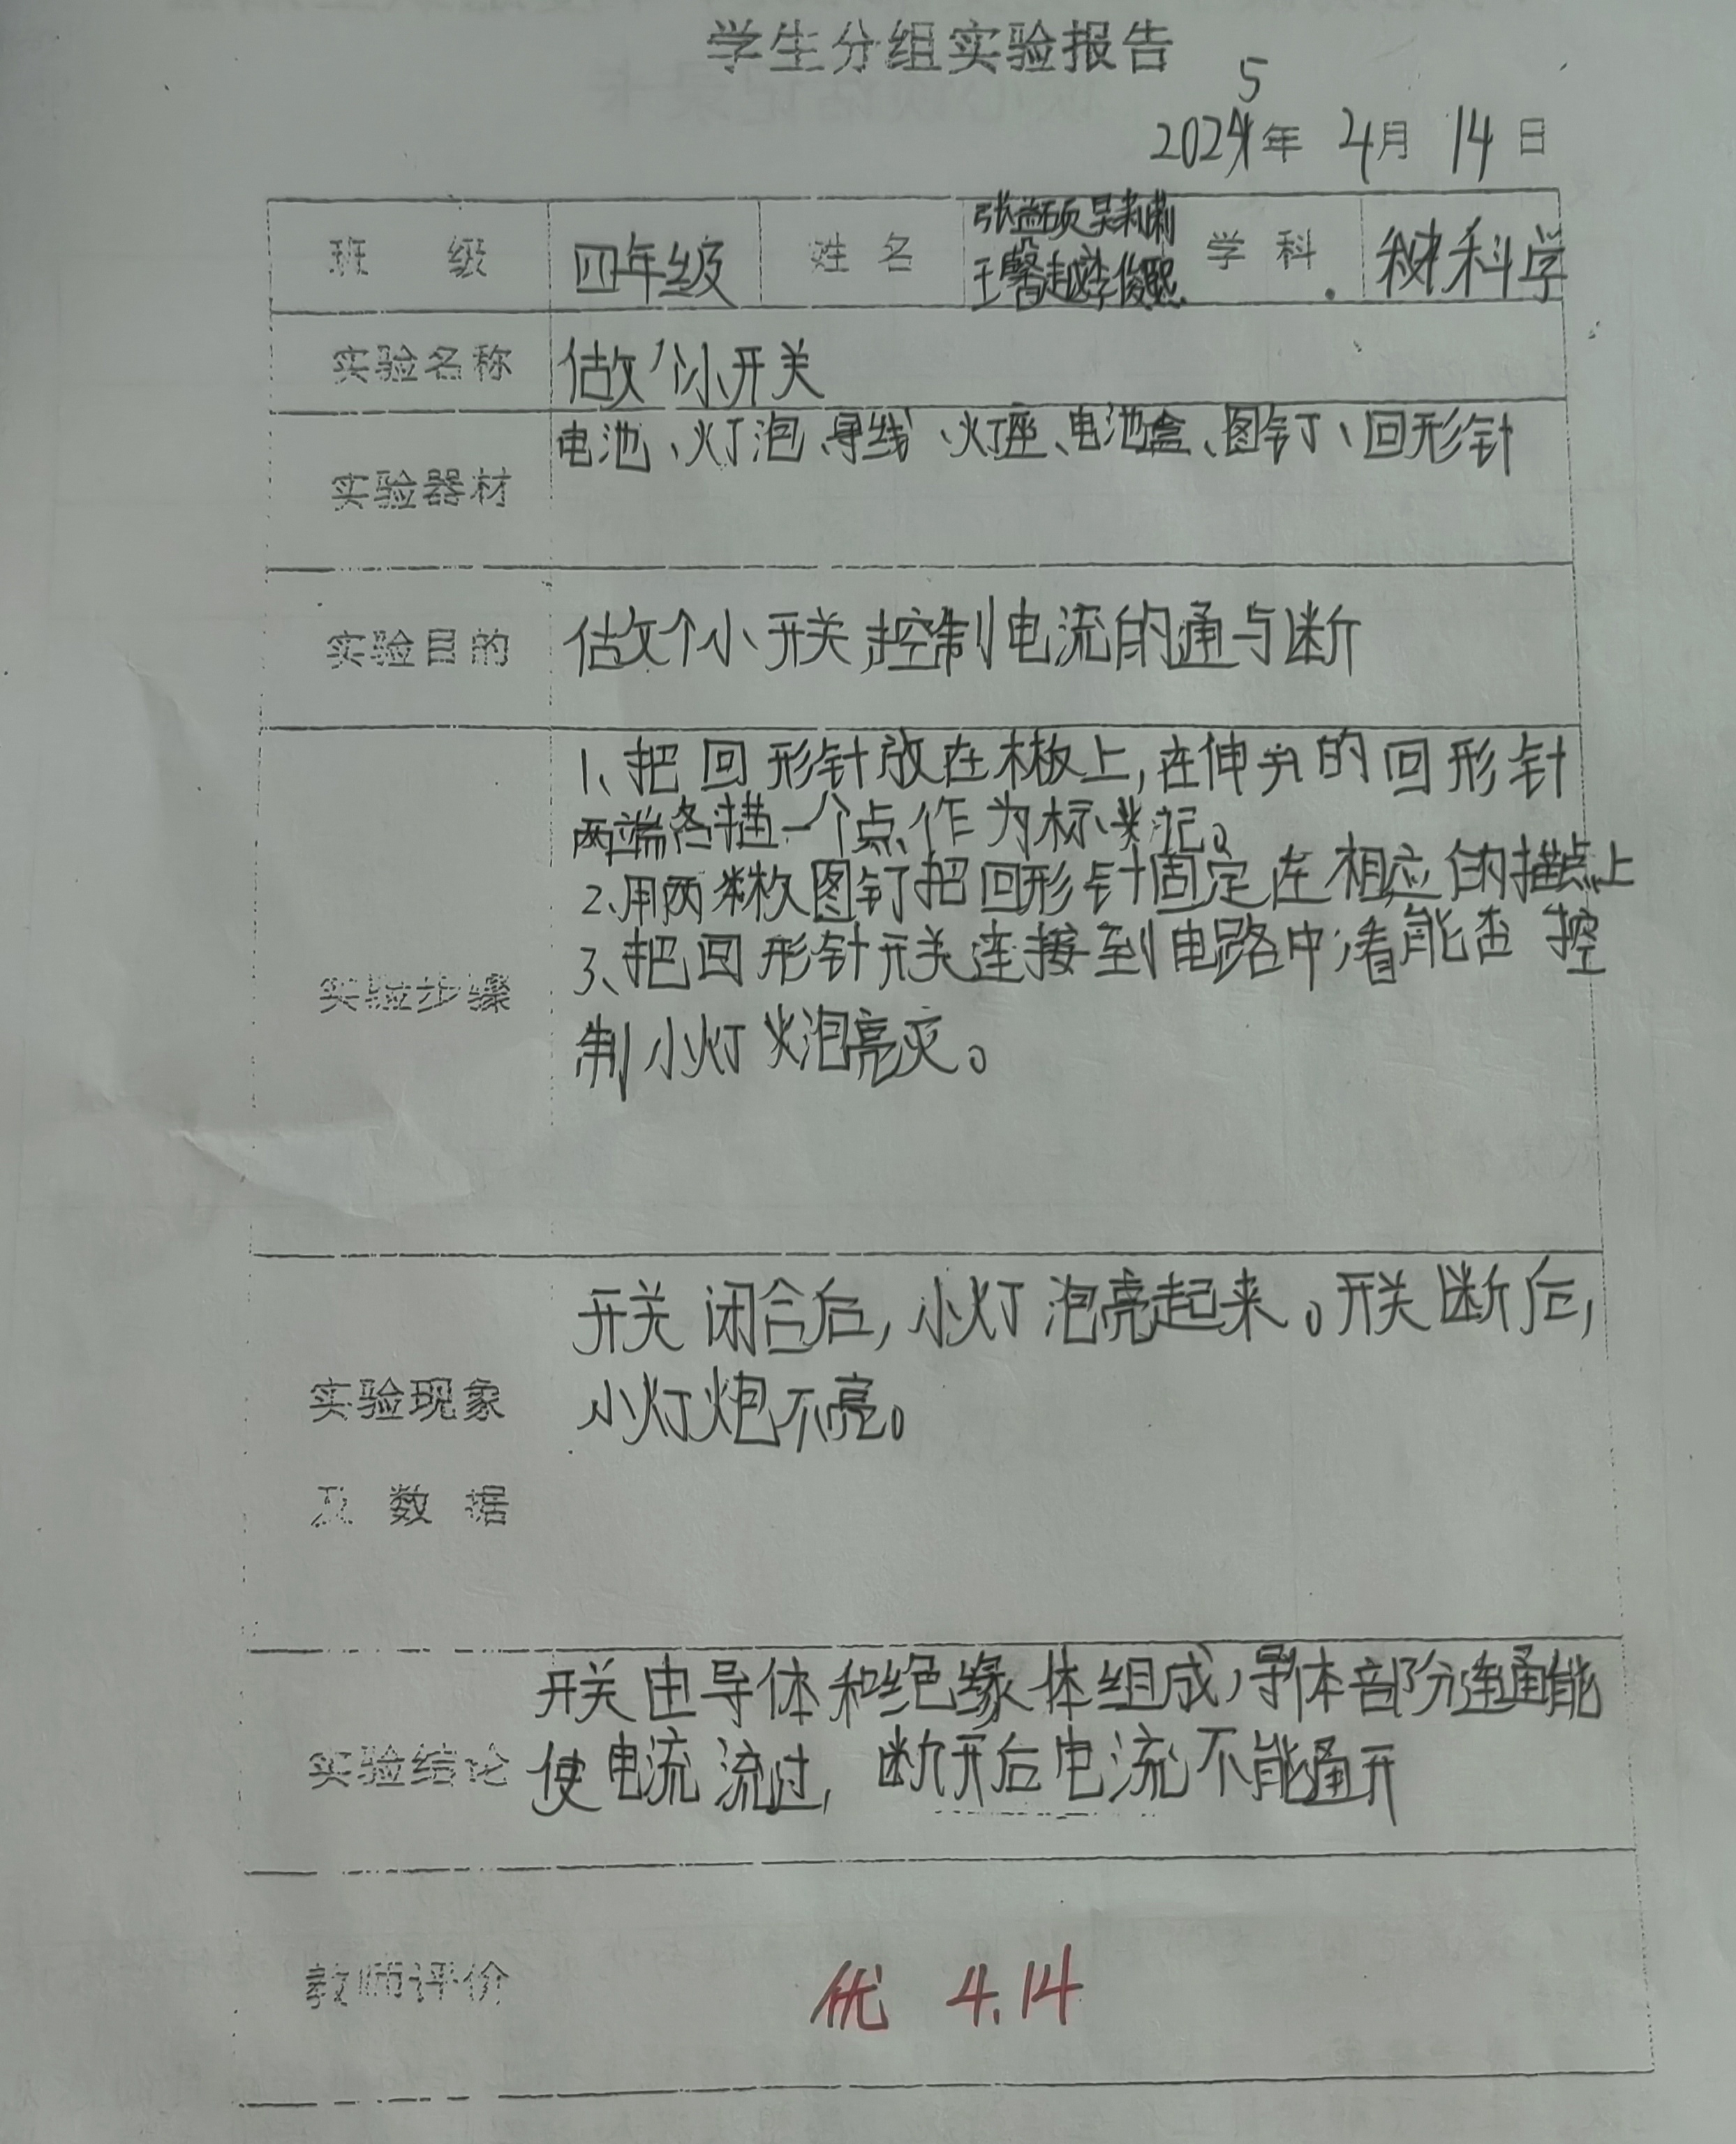 学生分组实验报告
2025年 4月 14日
班 级 四年级 姓 名 张益硕 吴莉莉 王馨越 李俊熙 学 科 科学
实验名称 做个小开关
实验器材 电池、灯泡、导线、灯座、电池盒、图钉、回形针
实验目的 做个小开关,控制电流的通与断
实验步骤
1、把回形针放在木板上,在伸开的回形针
两端各描一个点作为标记。
2、用两枚图钉把回形针固定在相应的描点上
3、把回形针开关连接到电路中,看能否控
制小灯泡亮灭。
实验现象
及 数 据
开关闭合后,小灯泡亮起来。开关断后,
小灯炮不亮。
实验结论
开关由导体和绝缘体组成,导体部分连通能
使电流流过,断开后电流不能通开
教师评价 优 4.14